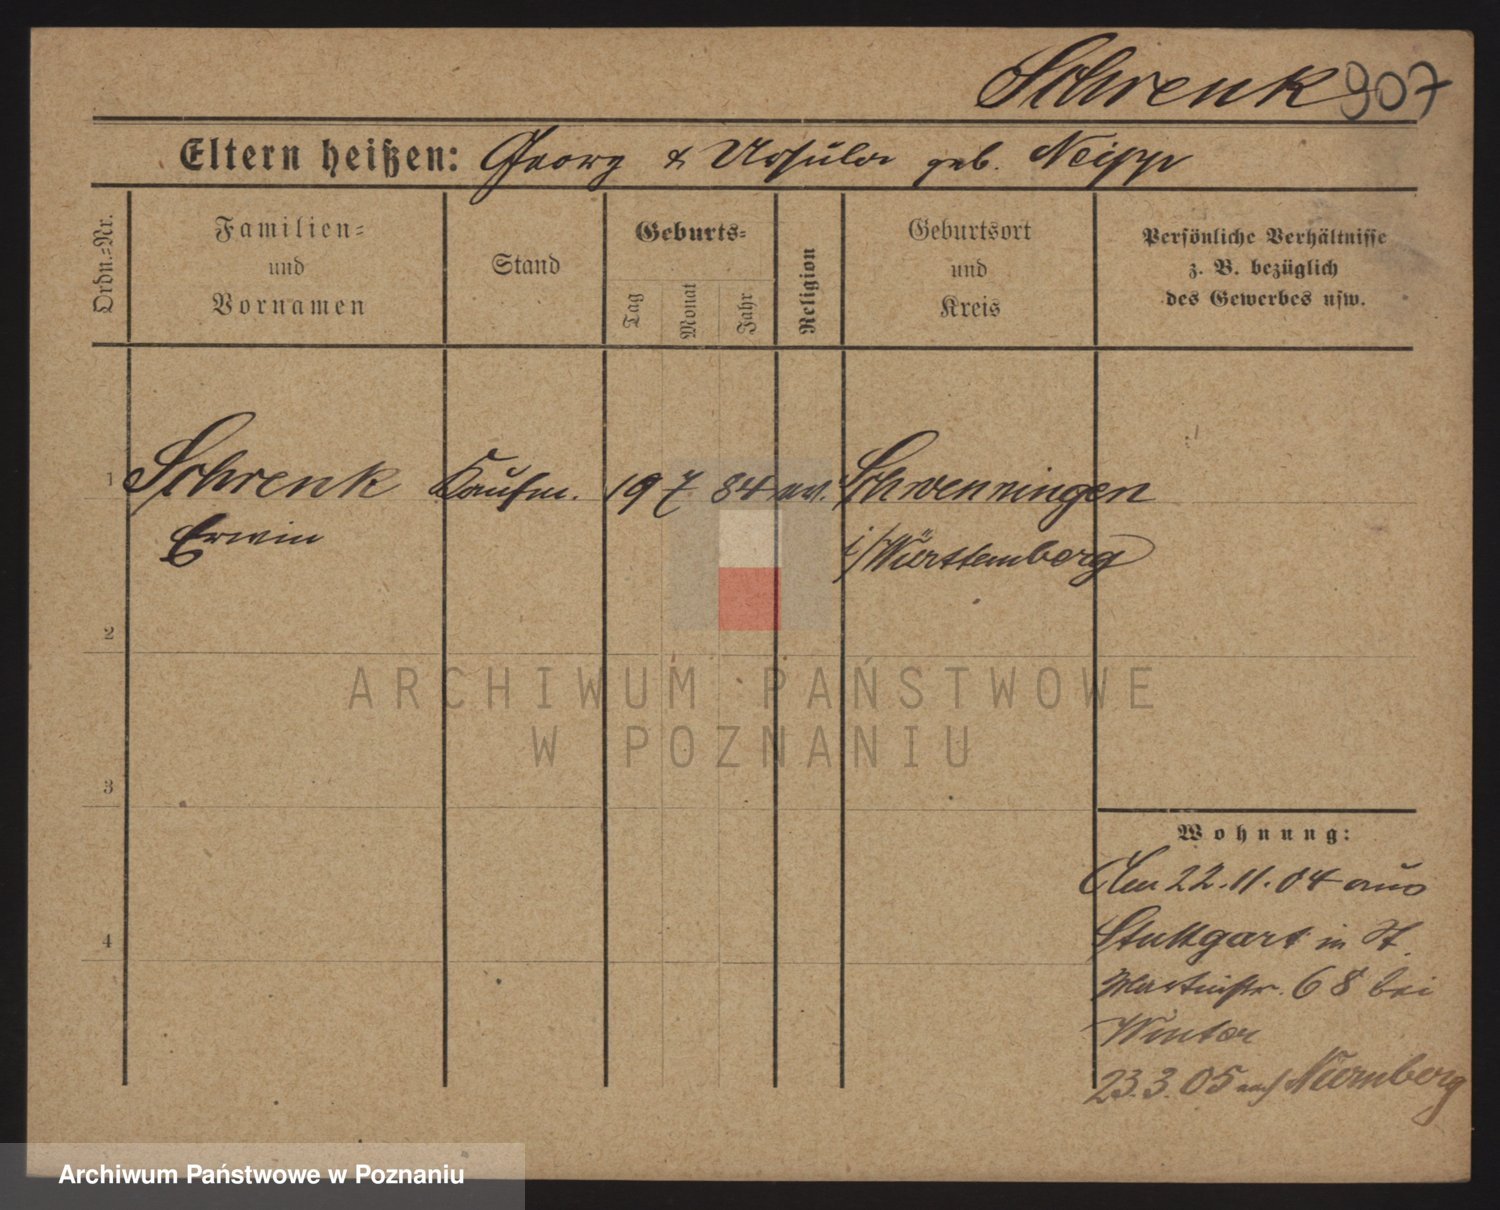 Schrenk 907
Eltern heißen: Georg & Ursula geb. Neipp
Ordn.=Nr.
Familien=
und
Vornamen
Stand
Geburts=
Tag
Monat
Jahr
Religion
Geburtsort
und
Kreis
Persönliche Verhältnisse
z. B. bezüglich
des Gewerbes usw.
1 Schrenk Kaufm. 19 7 84 ev. Schwenningen
Erwin i/Württemberg
2
3
4
Wohnung:
Am 22.11.04 aus
Stuttgart in St.
Martinstr. 68 bei
Winter
23.3.05 nach Nürnberg
ARCHIWUM PAŃSTWOWE
W POZNANIU
Archiwum Państwowe w Poznaniu